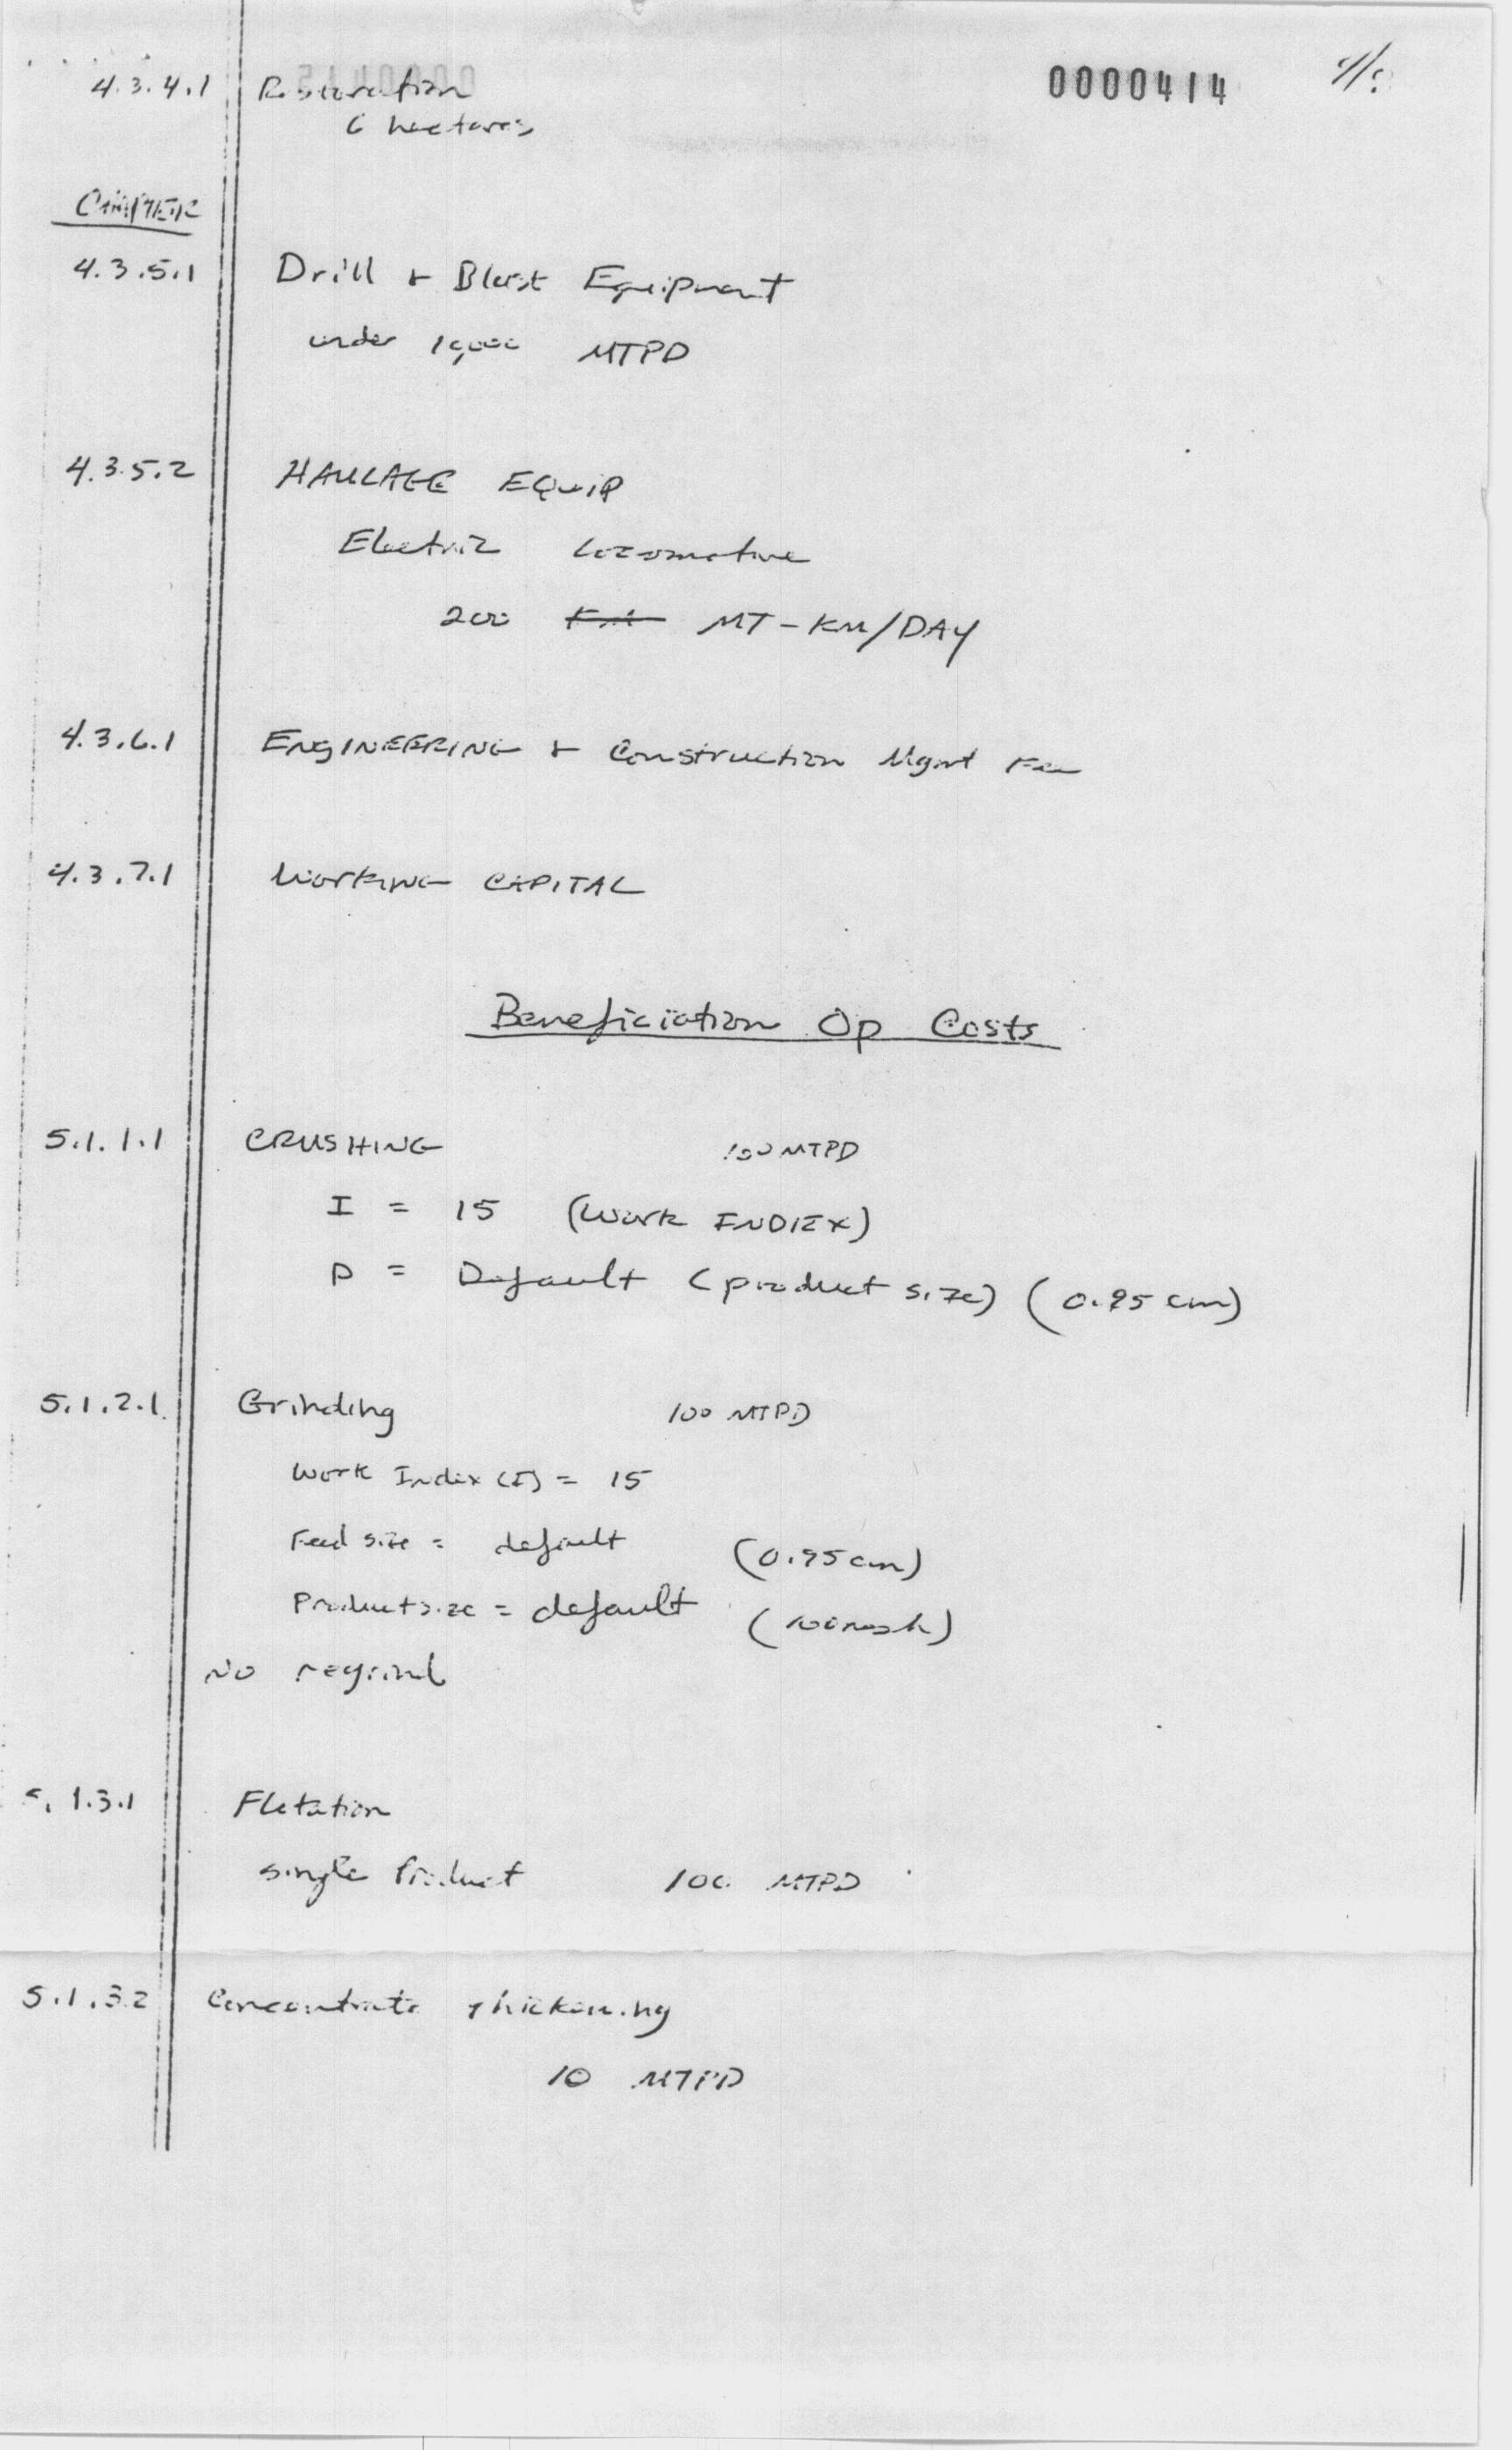 4.3.4.1 Restoration 0000414
6 hectares
CHAPTER
4.3.5.1 Drill + Blast Equipment
under 10,000 MTPD
4.3.5.2 HAULAGE EQUIP
Electric Locomotive
200 MT-KM/DAY
4.3.6.1 ENGINEERING + Construction Mgmt Fee
4.3.7.1 WORKING CAPITAL
Beneficiation Op Costs
5.1.1.1 CRUSHING 100 MTPD
I = 15 (Work INDEX)
P = Default (product size) (0.95 cm)
5.1.2.1 Grinding 100 MTPD
Work Index (I) = 15
Feed size = default (0.95 cm)
Product size = default (100 mesh)
No regrind
5.1.3.1 Flotation
single Product 100 MTPD
5.1.3.2 Concentrate thickening
10 MTPD